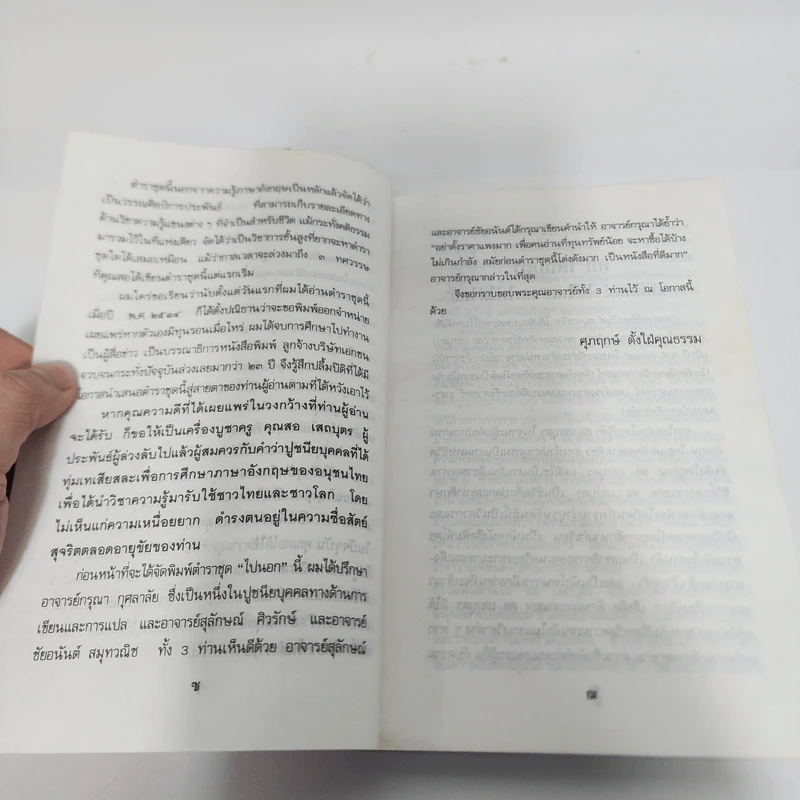 ตำราชุดนี้นอกจากความรู้ภาษาอังกฤษเป็นหลักแล้วจัดได้ว่า
เป็นวรรณศิลป์การประพันธ์ ที่สามารถเก็บรายละเอียดทาง
ด้านวิชาความรู้แขนงต่าง ๆ ที่จำเป็นสำหรับชีวิต แม้กระทั่งคติธรรม
มารวมไว้ในที่แห่งเดียว จัดได้ว่าเป็นวิชาการชั้นสูงที่ยากจะหาตำรา
ชุดใดได้เสมอเหมือน แม้ว่ากาลเวลาจะล่วงมาถึง ๓ ทศวรรษ
ที่คุณสอได้เขียนตำราชุดนี้แต่แรกเริ่ม
ผมใคร่ขอเรียนว่านับตั้งแต่วันแรกที่ผมได้อ่านตำราชุดนี้
เมื่อปี พ.ศ. ๒๕๑๔ ก็ได้ตั้งปณิธานว่าจะขอพิมพ์ออกจำหน่าย
เผยแพร่หากตัวเองมีทุนรอนเมื่อไหร่ ผมได้จบการศึกษาไปทำงาน
เป็นผู้สื่อข่าว เป็นบรรณาธิการหนังสือพิมพ์ ลูกจ้างบริษัทเอกชน
จวบจนกระทั่งปัจจุบันล่วงเลยมากว่า ๒๓ ปี จึงรู้สึกปลื้มปิติที่ได้มี
โอกาสนำเสนอตำราชุดนี้สู่สายตาของท่านผู้อ่านตามที่ได้หวังเอาไว้
หากคุณความดีที่ได้เผยแพร่ในวงกว้างที่ท่านผู้อ่าน
จะได้รับ ก็ขอให้เป็นเครื่องบูชาครู คุณสอ เสถบุตร ผู้
ประพันธ์ผู้ล่วงลับไปแล้วผู้สมควรกับคำว่าปูชนียบุคคลที่ได้
ทุ่มเทเสียสละเพื่อการศึกษาภาษาอังกฤษของอนุชนไทย
เพื่อได้นำวิชาความรู้มารับใช้ชาวไทยและชาวโลก โดย
ไม่เห็นแก่ความเหนื่อยยาก ดำรงตนอยู่ในความซื่อสัตย์
สุจริตตลอดอายุขัยของท่าน
ก่อนหน้าที่จะได้จัดพิมพ์ตำราชุด “ไปนอก” นี้ ผมได้ปรึกษา
อาจารย์กรุณา กุศลาสัย ซึ่งเป็นหนึ่งในปูชนียบุคคลทางด้านการ
เขียนและการแปล และอาจารย์สุลักษณ์ ศิวรักษ์ และอาจารย์
ชัยอนันต์ สมุทวณิช ทั้ง 3 ท่านเห็นดีด้วย อาจารย์สุลักษณ์
ซ
และอาจารย์ชัยอนันต์ได้กรุณาเขียนคำนำให้ อาจารย์กรุณาได้ย้ำว่า
“อย่าตั้งราคาแพงมาก เพื่อคนอ่านที่ทุนทรัพย์น้อย จะหาซื้อได้บ้าง
ไม่เกินกำลัง สมัยก่อนตำราชุดนี้โด่งดังมาก เป็นหนังสือที่ดีมาก”
อาจารย์กรุณากล่าวในที่สุด
จึงขอกราบขอบพระคุณอาจารย์ทั้ง 3 ท่านไว้ ณ โอกาสนี้
ด้วย
ศุภฤกษ์ ตั้งใฝ่คุณธรรม